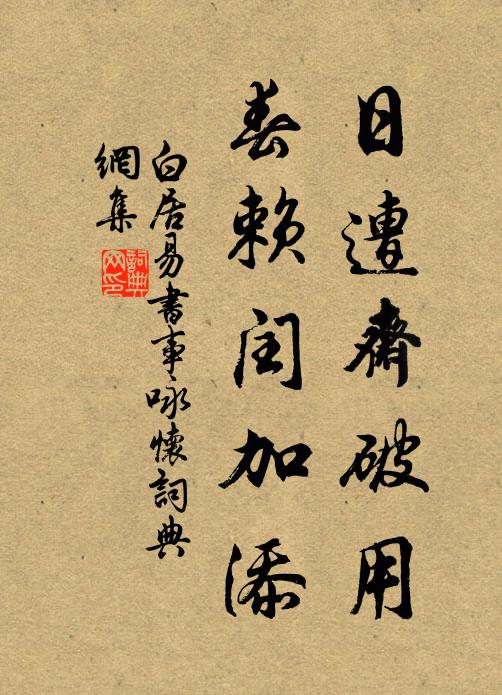 日遭齋破用
春賴閏加添
白居易書事咏懷詞典
網集
詞典
网印